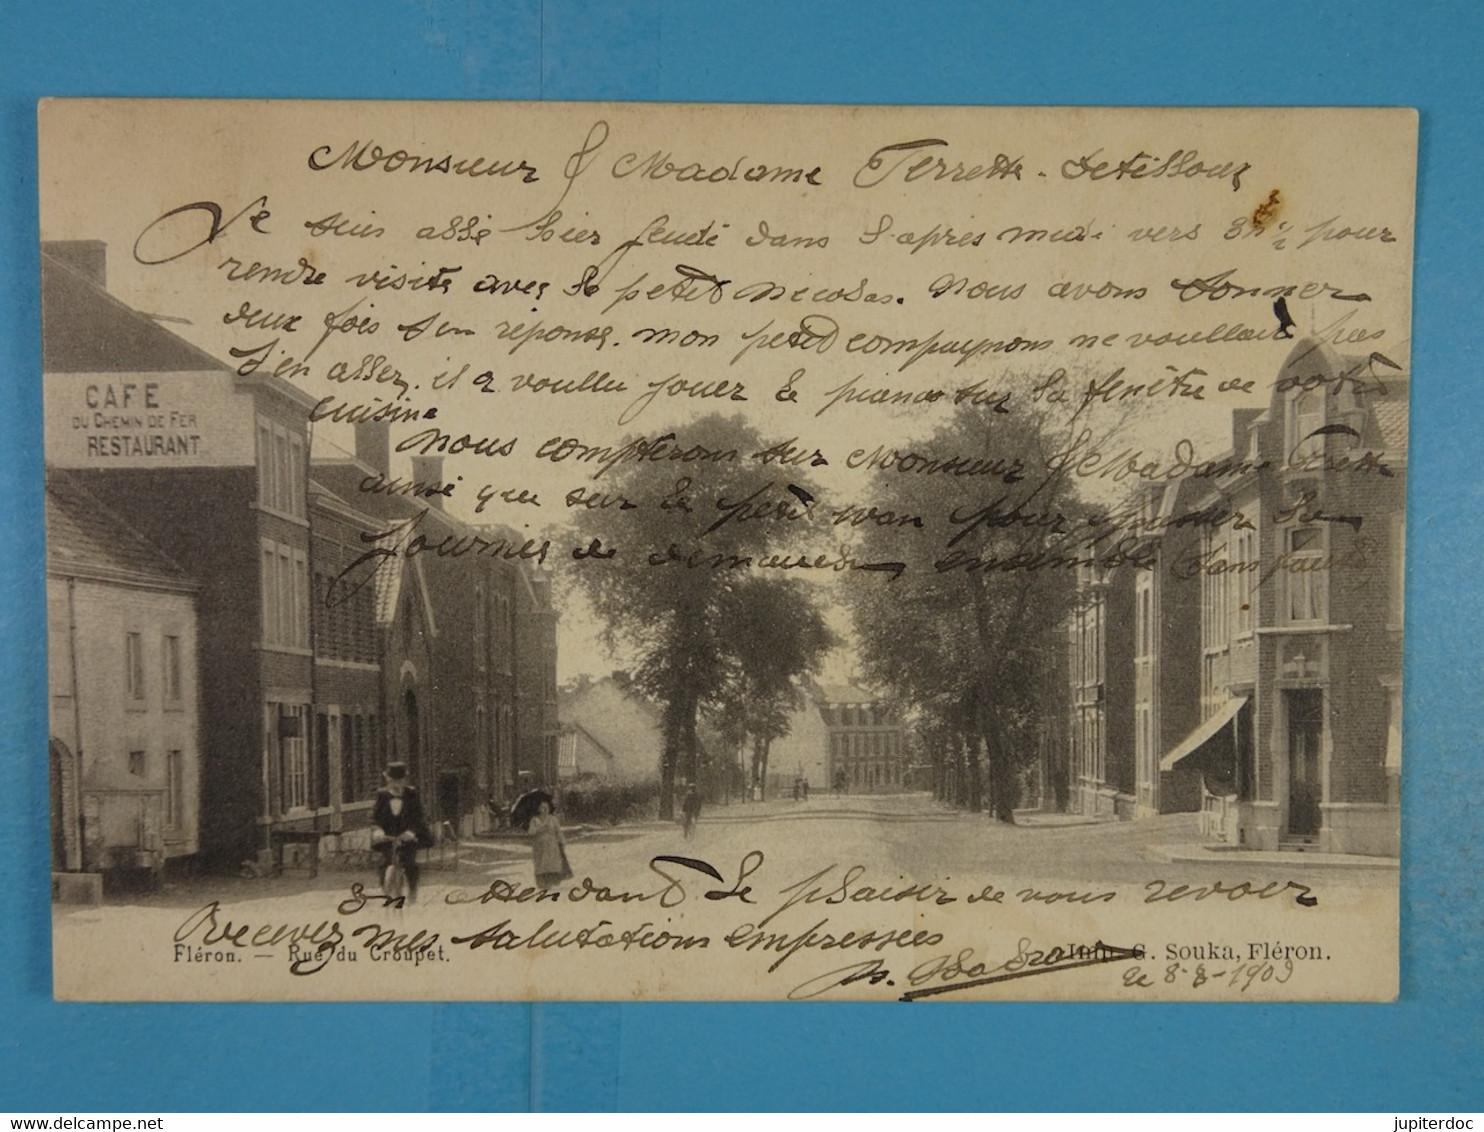 Monsieur & Madame Ferrette - Detilloux
Je suis allé hier jeudi dans l'après midi vers 3h½ pour
rendre visite avec le petit Nicolas. Nous avons sonner
deux fois sen réponse. mon petit compaynons ne voullait pas
s'en aller, il a voullu jouer le piano sur la fenêtre de votre
cuisine
CAFE
DU CHEMIN DE FER
RESTAURANT
Nous compterons sur Monsieur & Madame Ferette
ainsi que sur le petit ivan pour passer la
journée de demander ensemble sans faute
En attendant le plaisir de vous revoir
Recevez mes salutations empressées
Fléron. — Rue du Croupet.
Imp. G. Souka, Fléron.
le 8-8-1903
jupiterdoc